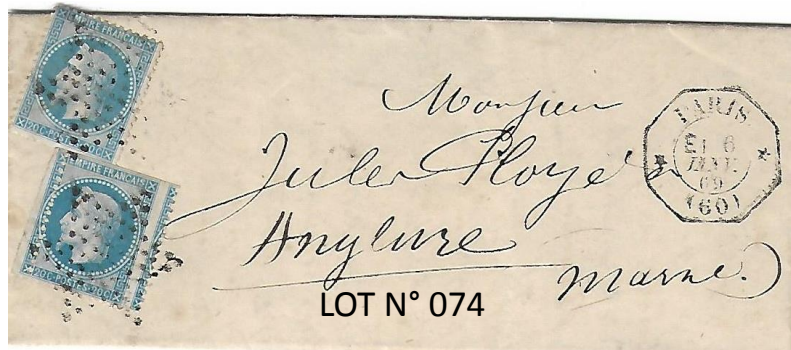 EMPIRE FRANÇAIS
20 C·POSTES·20 C
EMPIRE FRANÇAIS
20 C·POSTES·20 C
Monsieur
Jules Ployé
Anglure
Marne
PARIS
E1 6
JANV.
69
(60)
LOT N° 074